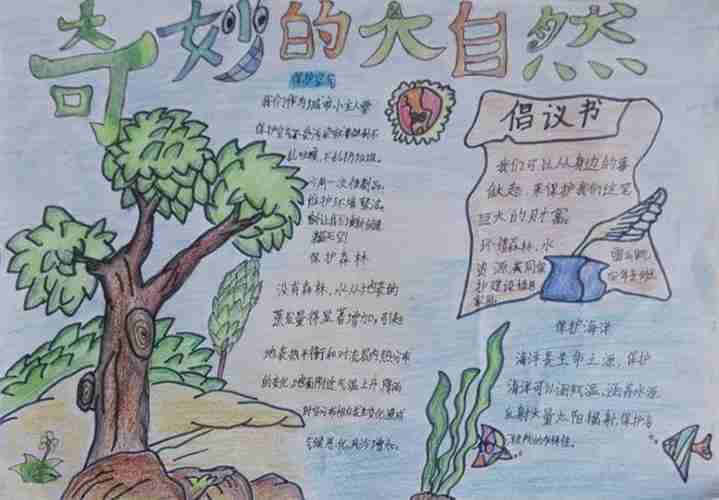 奇妙的大自然
保护空气
我们作为城市小主人要
保护空气
乱吐痰,不乱扔垃圾。
少用一次性制品。
维护环境整洁。
保护森林
没有森林,水从地表的
蒸发量将显著增加,引起
地表热平衡和对流层内热分布
的变化,地面附近气温上升,降雨
时空分布相应发生变化,造成
气候恶化,风沙增加。
倡议书
我们可以从身边的事
做起,来保护我们这笔
巨大的财富。
珍惜森林、水
资源,共同保
护建设绿色
家园
保护海洋
海洋是生命之源,保护
海洋可以调气温,涵养水源
反射大量太阳辐射,保护